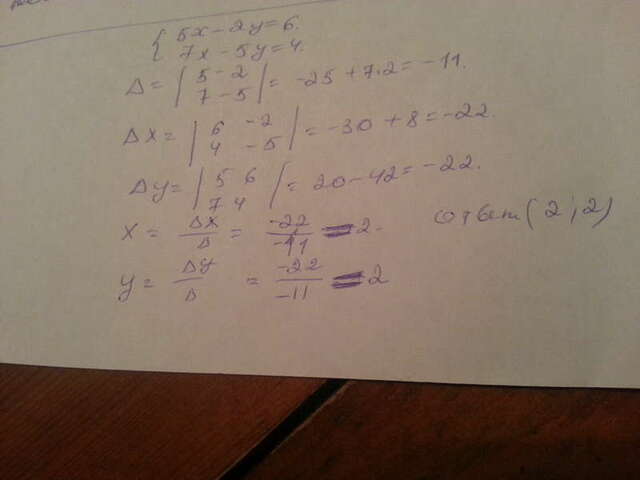 { 5x - 2y = 6.
7x - 5y = 4.
Δ = | 5 -2
7 -5 | = -25 + 7·2 = -11.
Δx = | 6 -2
4 -5 | = -30 + 8 = -22.
Δy = | 5 6
7 4 | = 20 - 42 = -22.
x = Δx/Δ = -22/-11 = 2. ответ (2;2)
y = Δy/Δ = -22/-11 = 2